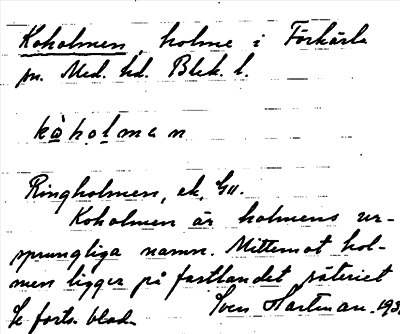 Koholmen, holme i Förkärla
sn. Med. hd. Blek. l.
kòhòlman
Ringholmen, ek. GII.
Koholmen är holmens ur-
sprungliga namn. Mittemot hol-
men ligger på fastlandet säteriet
Se forts. blad. Sven Hartman. 193